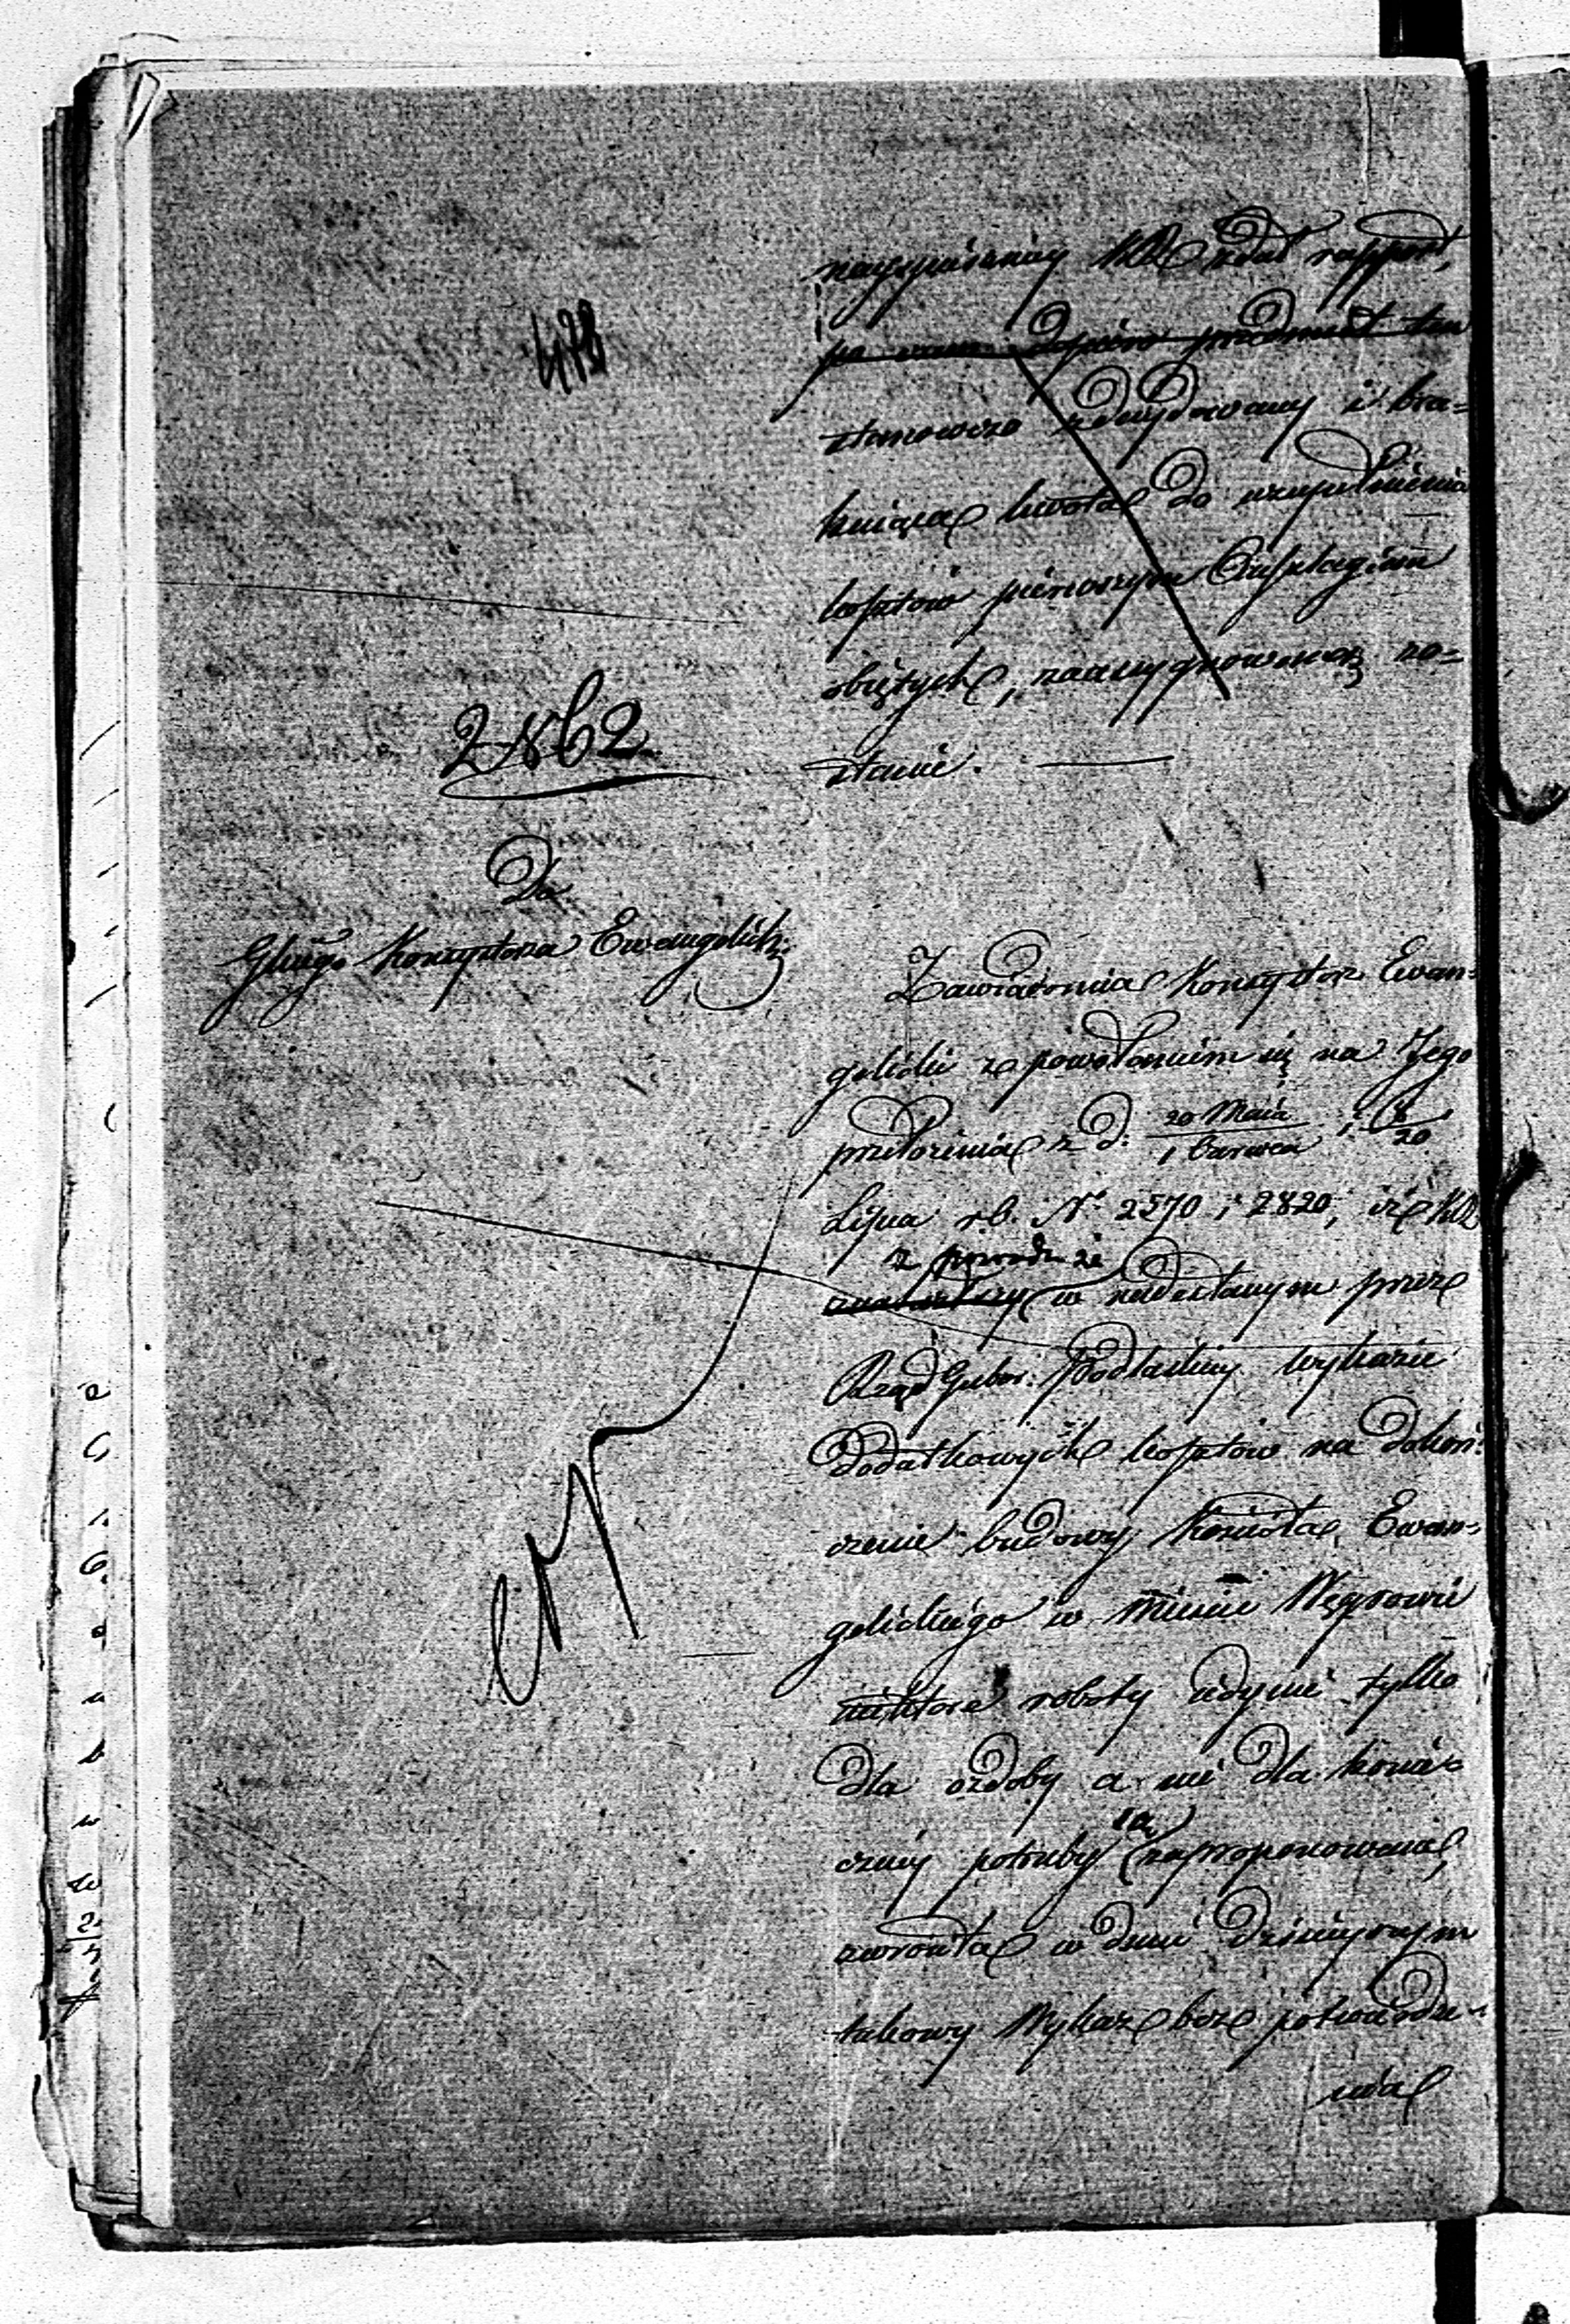 478
nayspieszniey KR zdał rapport,
po czem dopiero przedmiot ten
stanowczo zdecydowany i bra=
kuiąca kwota do uzupełnienia
kosztów pierwszym Anszlagiem
obiętych, zaassygnowaną zo=
stanie.
2862
Do
Głnego Konsystorza Ewangelick:
Zawiadomia Konsystorz Ewan=
gelicki z powołaniem się na Jego
przełożenia z d: 20 Maia / 1 Czerwca i 8/20
Lipca r.b. No 2270 i 2820, iż KR
z powodu że
w nadesłanym przez
Rząd Guber: Podlaskiey wykazie
dodatkowych kosztów na dokoń=
czenie budowy Kościoła Ewan=
gelickiego w Mieście Węgrowie
niektóre roboty iedynie tylko
dla ozdoby a nie dla koniec=
zney potrzeby są zaproponowane,
zwróciła w dniu dzisieyszym
takowy Wykaz bez potwierdze=
nia